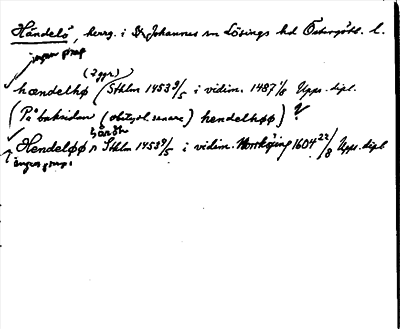 Händelö, herrg. i D:r Johannes sn Lösings hd Östergötl. l.
ingen prep
(2 ggr)
hændelhø (Sthlm 1453 9/5 i vidim. 1487 1/8 Upps. dipl.
(På baksidan (obetydl. senare) hendelhøø) ?
härdh
Hendeløø Sthlm 1453 9/5 i vidim. Norrköping 1604 22/8 Upps. dipl
ingen prep.